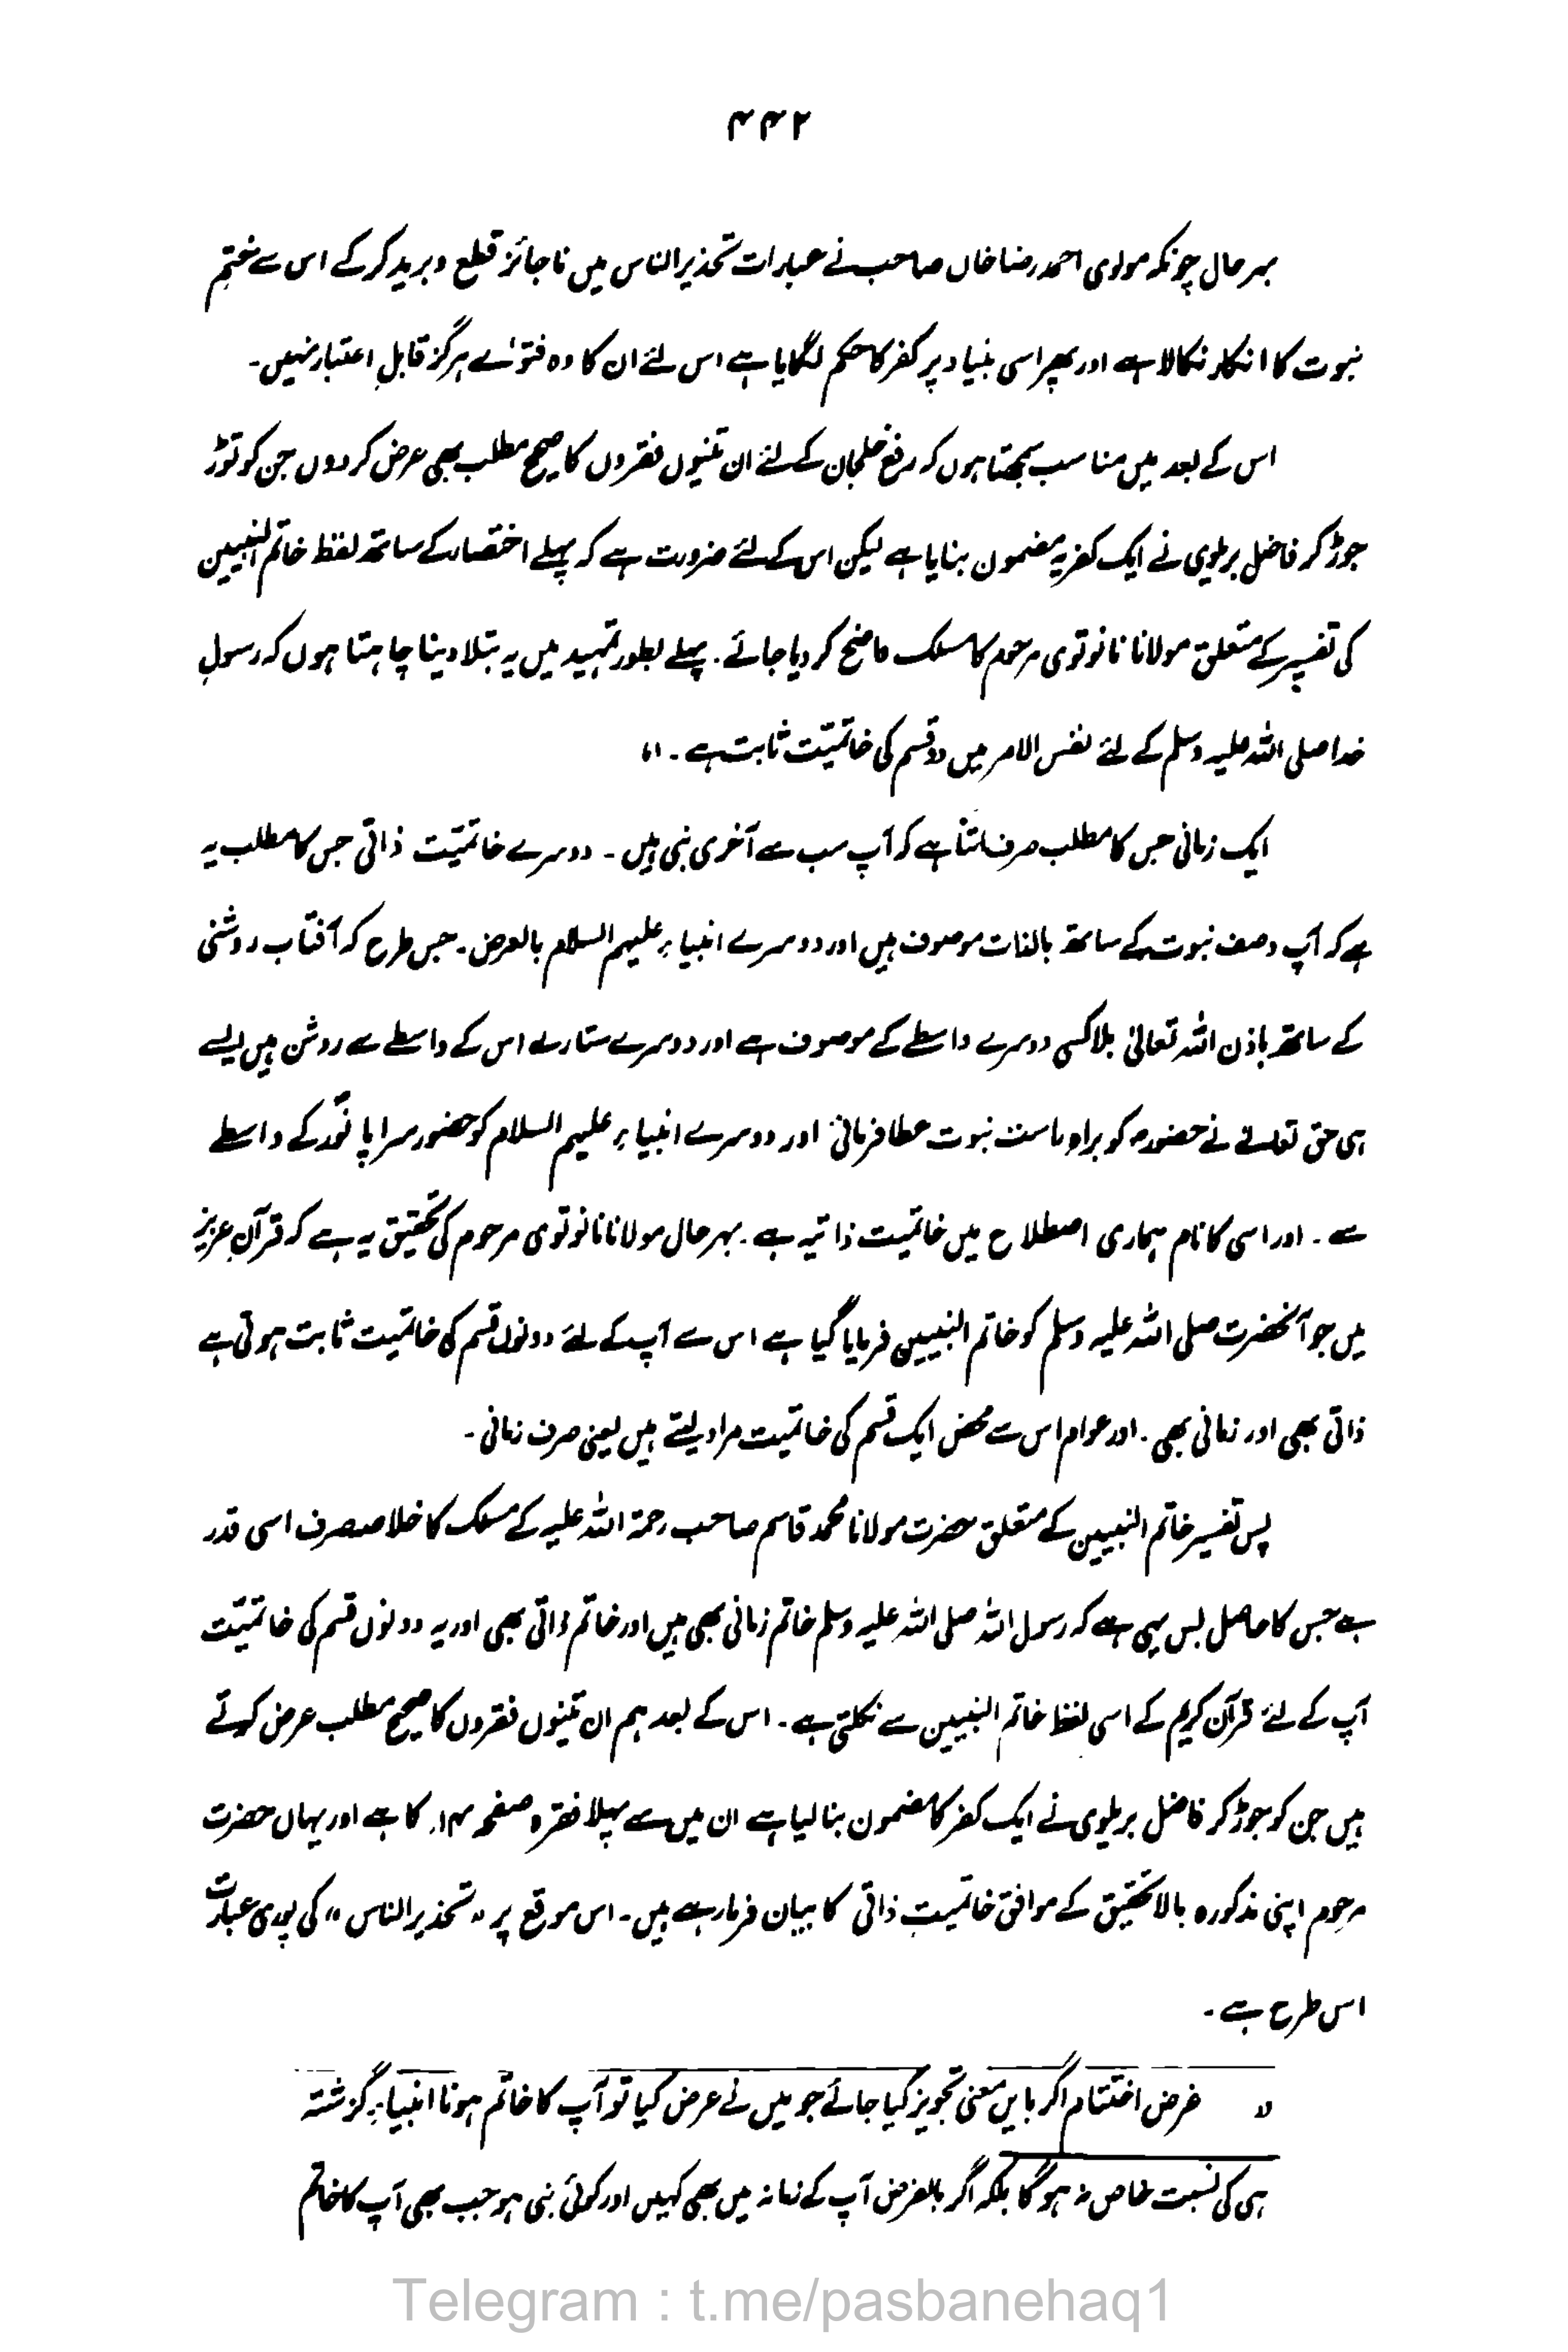 ۴۴۲
بہرحال چونکہ مولوی احمد رضا خاں صاحب نے عبارات تحذیر الناس میں ناجائز قطع و برید کر کے اس سے ختم
نبوت کا انکار نکالا ہے اور پھر اسی بنیاد پر کفر کا حکم لگایا ہے اس لئے ان کا وہ فتویٰ ہرگز قابلِ اعتبار نہیں۔
اس کے بعد میں مناسب سمجھتا ہوں کہ رفع خلجان کے لئے ان تینوں فقروں کا صحیح مطلب بھی عرض کردوں جن کو توڑ
جوڑ کر فاضل بریلوی نے ایک کفریہ مضمون بنایا ہے لیکن اس کے لئے ضرورت ہے کہ پہلے اختصار کے ساتھ لفظ خاتم النبیین
کی تفسیر کے متعلق مولانا نانوتوی مرحوم کا مسلک واضح کر دیا جائے۔ پہلے بطور تمہید میں یہ بتلا دینا چاہتا ہوں کہ رسولِ
خدا صلی اللہ علیہ وسلم کے لئے نفس الامر میں دو قسم کی خاتمیّت ثابت ہے۔
ایک زمانی جس کا مطلب صرف اتنا ہے کہ آپ سب سے آخری نبی ہیں۔ دوسرے خاتمیّت ذاتی جس کا مطلب یہ
ہے کہ آپ وصف نبوت کے ساتھ بالذات موصوف ہیں اور دوسرے انبیاء علیہم السلام بالعرض۔ جس طرح کہ آفتاب روشنی
کے ساتھ باذن اللہ تعالیٰ بلا کسی دوسرے واسطے کے موصوف ہے اور دوسرے ستارے اس کے واسطے سے روشن ہیں ایسے
ہی حق تعالےٰ نے حضورؐ کو براہ راست نبوت عطا فرمائی اور دوسرے انبیاء علیہم السلام کو حضور سراپا نُور کے واسطے
سے۔ اور اسی کا نام ہماری اصطلاح میں خاتمیت ذاتیہ ہے۔ بہرحال مولانا نانوتوی مرحوم کی تحقیق یہ ہے کہ قرآنِ عزیز
میں جو آنحضرت صلی اللہ علیہ وسلم کو خاتم النبیین فرمایا گیا ہے اس سے آپ کے لئے دونوں قسم کی خاتمیت ثابت ہوتی ہے
ذاتی بھی اور زمانی بھی۔ اور عوام اس سے محض ایک قسم کی خاتمیت مراد لیتے ہیں یعنی صرف زمانی۔
پس تفسیر خاتم النبیین کے متعلق حضرت مولانا محمد قاسم صاحب رحمۃ اللہ علیہ کے مسلک کا خلاصہ صرف اسی قدر
ہے جس کا حاصل بس یہی ہے کہ رسول اللہ صلی اللہ علیہ وسلم خاتم زمانی بھی ہیں اور خاتم ذاتی بھی اور یہ دونوں قسم کی خاتمیّت
آپ کے لئے قرآن کریم کے اسی لفظ خاتم النبیین سے نکلتی ہے۔ اس کے بعد ہم ان تینوں فقروں کا صحیح مطلب عرض کرتے
ہیں جن کو جوڑ کر فاضل بریلوی نے ایک کفر کا مضمون بنا لیا ہے ان میں سے پہلا فقرہ صفحہ ۱۴ کا ہے اور یہاں حضرت
مرحوم اپنی مذکورہ بالا تحقیق کے موافق خاتمیتِ ذاتی کا بیان فرما رہے ہیں۔ اس موقع پر "تحذیر الناس" کی پوری عبارت
اس طرح ہے۔
" غرض اختتام اگر بایں معنی تجویز کیا جائے جو میں نے عرض کیا تو آپ کا خاتم ہونا انبیاء گزشتہ
ہی کی نسبت خاص نہ ہوگا بلکہ اگر بالفرض آپ کے زمانہ میں بھی کہیں اور کوئی نبی ہو جب بھی آپ کا خاتم
Telegram : t.me/pasbanehaq1